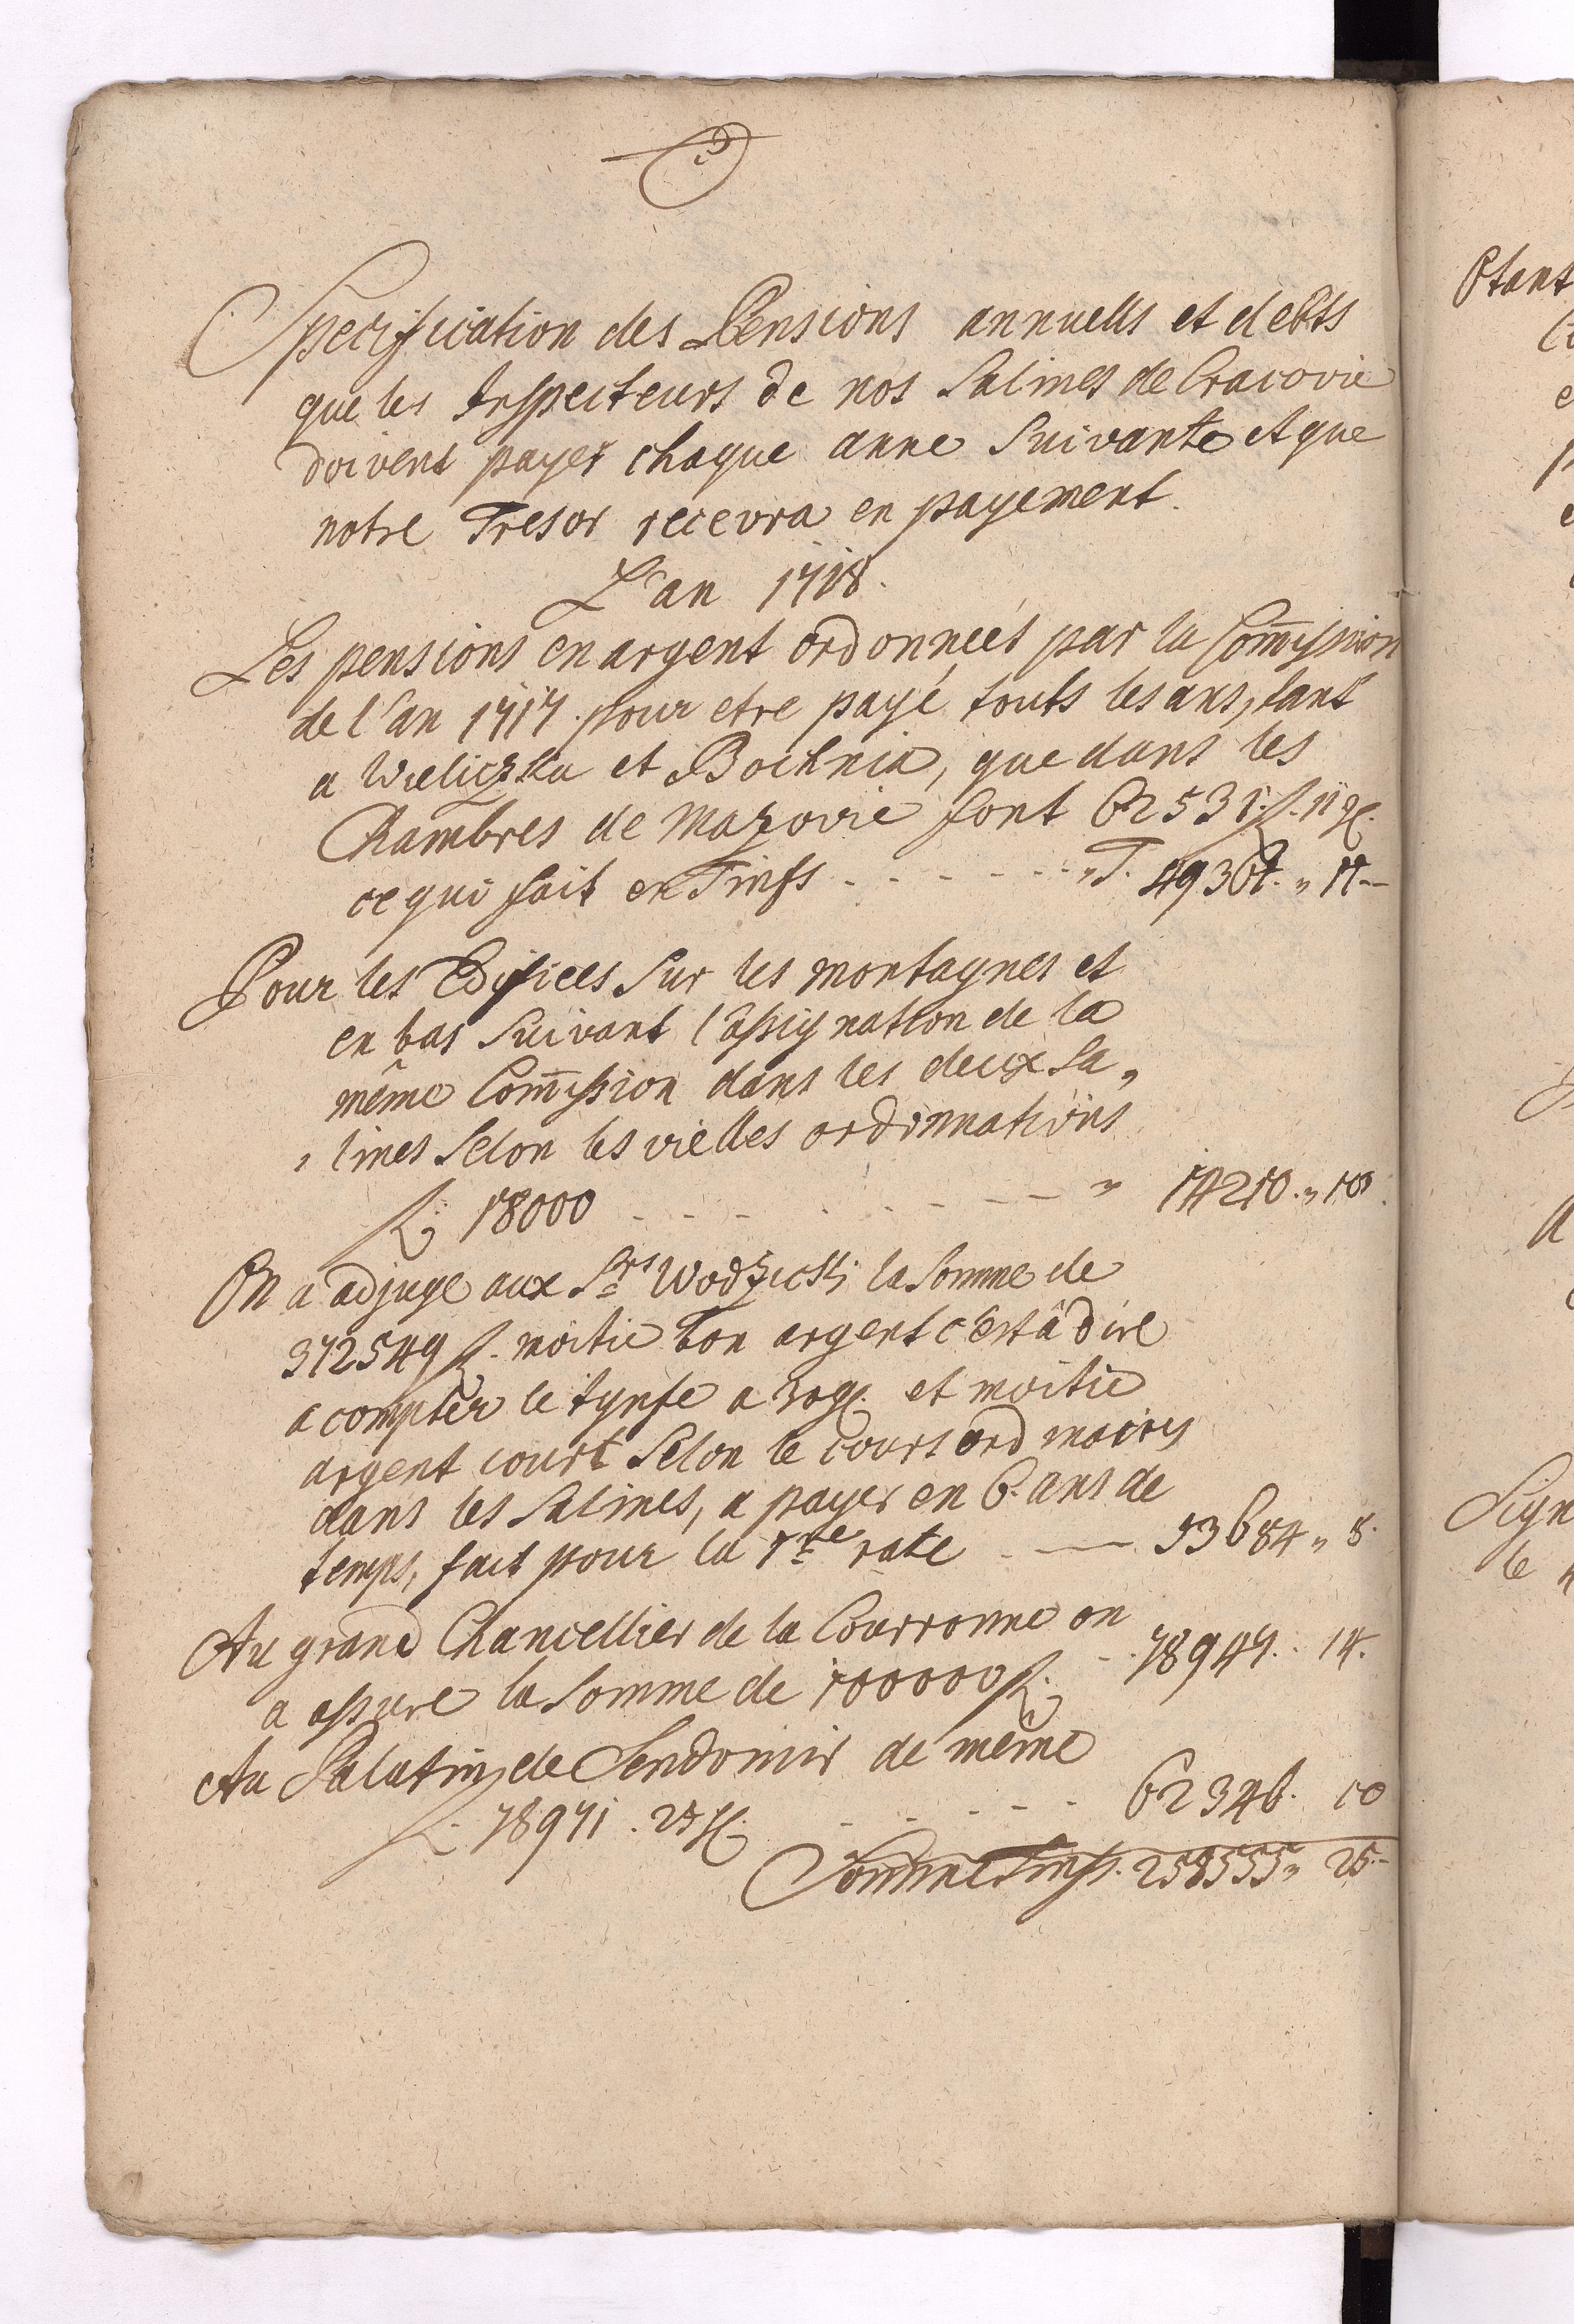 Specification des Pensions annuells et debts
que les Inspecteurs de nos Salines de Cracovie
doivent payer chaque anne Suivante et que
notre Tresor recevra en payement.
L'an 1718.
Les pensions en argent ordonneés par la Com̄ission
de l'an 1717. pour etre payé touts les ans, tant
a Wieliczka et Bochnia, que dans les
Chambres de Mazovie font 62531 fl. 11 gl.
ce qui fait en Tinfs - - - - - - - „T. 49367. „ 17 -
Pour les Edifices Sur les montagnes et
en bas Suivant l'assignation de la
même Com̄ission dans les deux Sa„
„ lines Selon les vielles ordinnations
fl. 18000 - - - - - - - - - „ 14210. „ 10.
On a adjuge aux Srs Wodzicki la Somme de
372549 fl. moitie bon argent c'est â dire
a compter le tynfe a 30 gl. et moitie
argent court Selon le cours ordinaires
dans les Salines, a payer en 6. ans de
temps, fait pour la 1re rate - — 53684 „ 8.
Au grand Chancellier de la Courronne on
a assure la Somme de 100000 fl. - - 78947. 14.
Au Palatin de Sendomir de même
fl. 78971. 25 gl. - - - - - 62346. 10
Somme Tinfs. 258555 „ 25 -
Otant
Sign
le